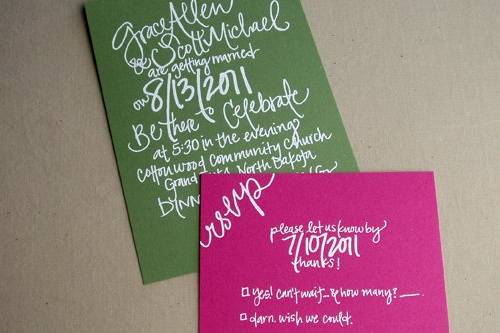 Grace Allen
& Scott Michael
are getting married
on 8/13/2011
Be there to Celebrate
at 5:30 in the evening
Cottonwood Community Church
Grand North Dakota
rsvp
please let us know by
7/10/2011
thanks!
yes! can't wait... & how many?
darn. wish we could.